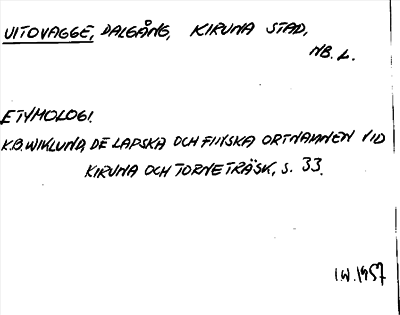 UITOVAGGE, DALGÅNG, KIRUNA STAD,
NB. L.
ETYMOLOGI.
K.B. WIKLUND, DE LAPSKA OCH FINSKA ORTNAMNEN VID
KIRUNA OCH TORNETRÄSK, S. 33.
I W. 1957